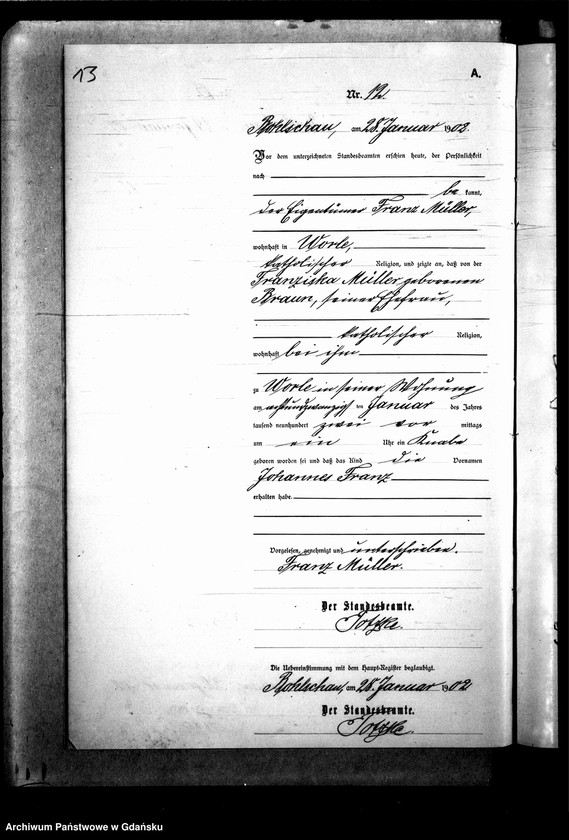 13
A.
Nr. 12.
Bohlschau, am 28. Januar 1902.
Vor dem unterzeichneten Standesbeamten erschien heute, der Persönlichkeit
nach
be kannt,
der Eigentümer Franz Müller,
wohnhaft in Worle,
katholischer Religion, und zeigte an, daß von der
Franziska Müller geborenen
Braun, seiner Ehefrau,
katholischer Religion,
wohnhaft bei ihm
zu Worle in seiner Wohnung
am achtundzwanzigsten Januar des Jahres
tausend neunhundert zwei vor mittags
um ein Uhr ein Knabe
geboren worden sei und daß das Kind die Vornamen
Johannes Franz
erhalten habe.
Vorgelesen, genehmigt und unterschrieben.
Franz Müller.
Der Standesbeamte.
Totzke.
Die Uebereinstimmung mit dem Haupt-Register beglaubigt.
Bohlschau, am 28. Januar 1902
Der Standesbeamte.
Totzke.
Archiwum Państwowe w Gdańsku